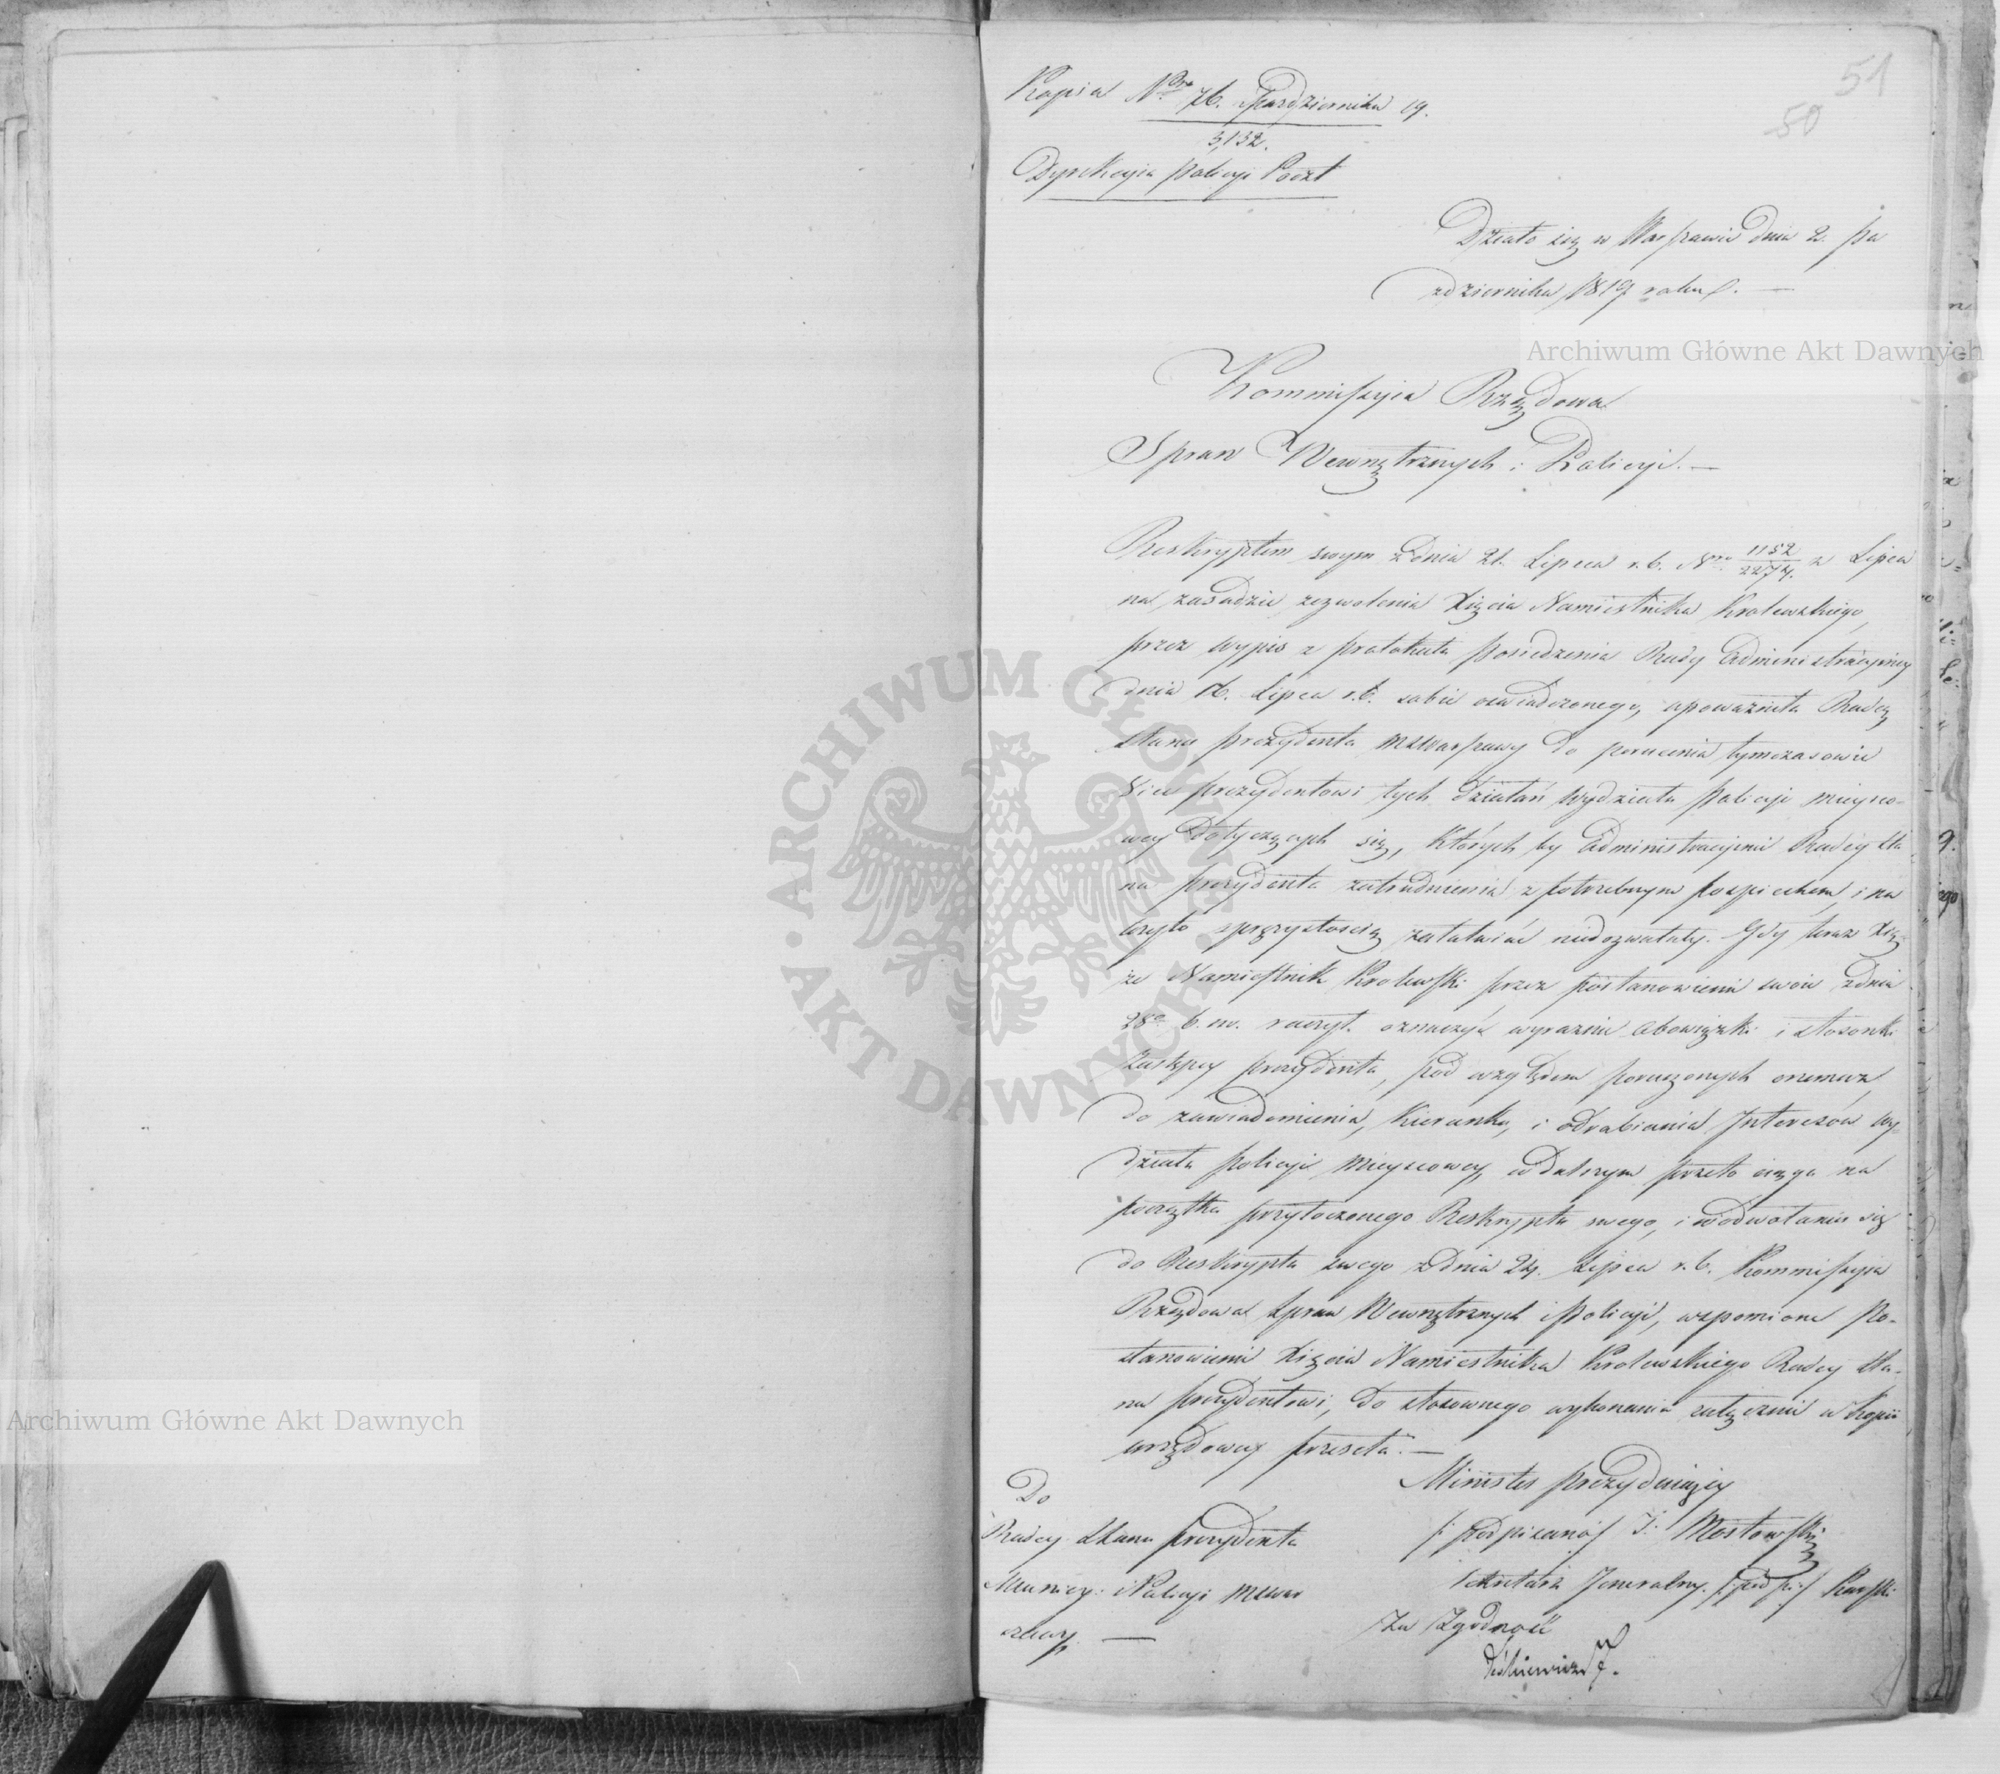 51
50
Kopia Nro 76. Października 19.
3,132.
Dyrekcyia Policyi Poczt
Działo się w Warszawie dnia 2. Pa
zdziernika 1819 roku. —
Kommissyia Rządowa
Spraw Wewnętrznych i Policyi. —
Reskryptem swym z dnia 21. Lipca r. b. Nro 1152/2274. z Lipca
na zasadzie zezwolenia Xięcia Namiestnika Krolewskiego,
przez wypis z protokułu Posiedzenia Rady Administracyiney
dnia 16. Lipca r. b. sobie oswiadczonego, upoważniła Radcę
Stanu Prezydenta MSWarszawy do poruczenia tymczasowie
Vice Prezydentowi tych działań Wydziału Policyi mieysco-
wey dotyczących się, których by Administracyine Radcy Sta
nu Prezydenta zatrudnienia z potrzebnym pospiechem, i na
leżytą sprężystością załatwiać niedozwalały. Gdy teraz Xią
że Namiestnik Krolewski przez postanowienie swoie z dnia
28o b. m. raczył oznaczyć wyraznie obowiązki i stosonki
Zastępcy Prezydenta, pod względem poruczonych onemuz,
do zawiadomienia, kierunku, i odrabiania Interesów Wy-
działu Policyi Mieyscowey, w dalszym przeto ciągu na
początku przytoczonego Reskryptu swego, i w odwołaniu się
do Reskryptu swego z dnia 24. Lipca r. b. Kommissyia
Rządowa Spraw Wewnętrznych i Policyi, wspomione Po-
stanowienie Xięcia Namiestnika Krolewskiego Radcy Sta-
nu Prezydentowi, do stosownego wykonania załącznie w kopii
urzędowey przeseła. —
Minister Prezyduiący
/: podpisano :/ T. Mostowski
Sekretarz Jeneralny /: podp: :/ Karski
Za Zgodność
Do
Radcy Stanu Prezydenta
Municy: i Policyi MSWar
szawy. —
Archiwum Główne Akt Dawnych
Archiwum Główne Akt Dawnych
ARCHIWUM GŁÓWNE AKT DAWNYCH